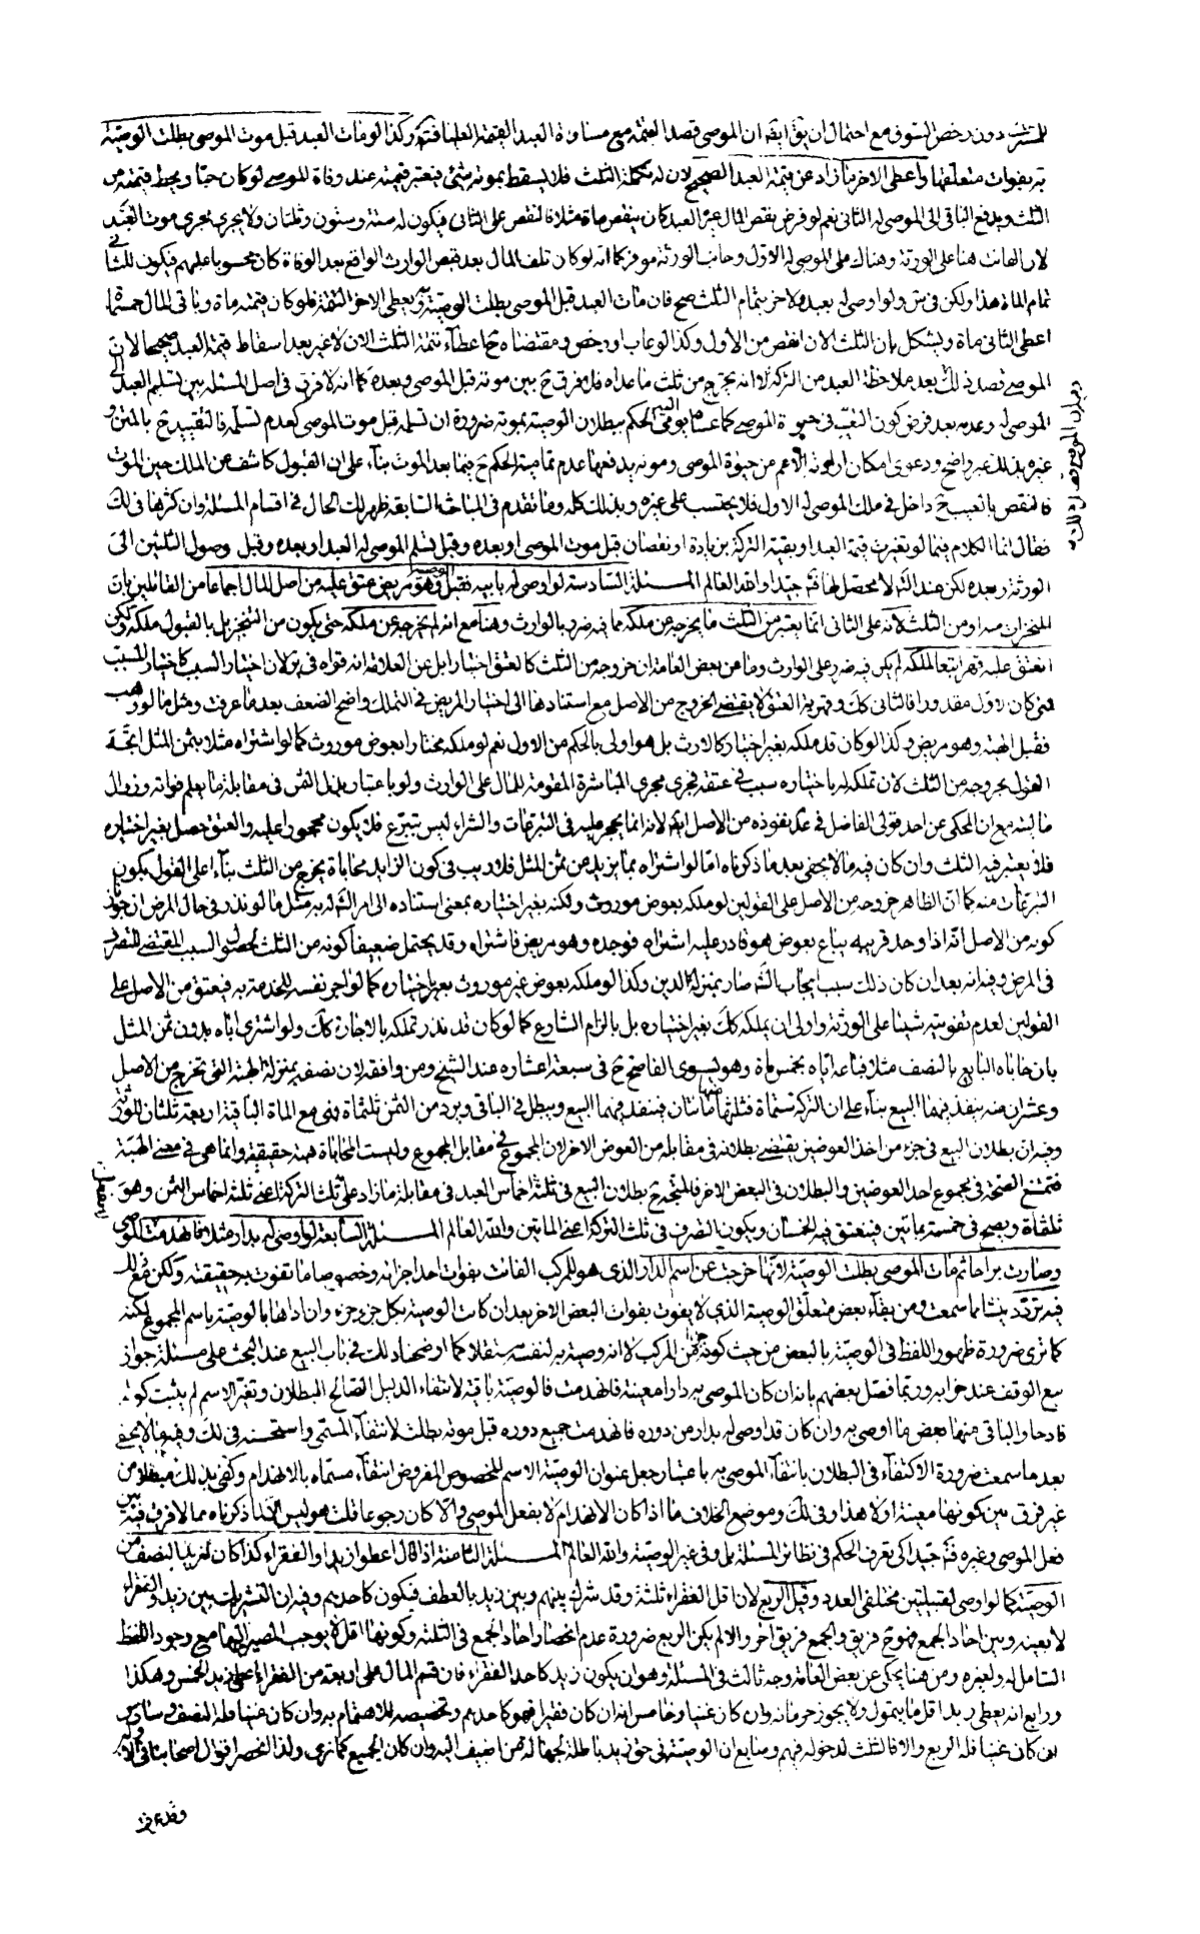 دون رخص السوق مع احتمال ان يق ايضا ان الموصى قصد العتمة مع مساواة العبد القيمة العليا فتم وكذا لو مات العبد قبل موت الموصى بطلت الوصية
به بفوات متعلقها واعطى الاخر ما زاد عن قيمة العبد الصحيح لان له تكملة الثلث فلا يسقط بموته شئ فيعتبر قيمته عند وفاة الموصى لو كان حيا ويحط قيمته من
الثلث ويدفع الباقى الى الموصى له الثانى نعم لو فرض نقص المال غير العبد كان ينقص ماة مثلا فالنقص على الثانى فيكون له ستة وستون وثلثان ولا يجرى مجرى موت العبد
لان الفائت هنا على الورثة وهناك على الموصى له الاول وجانب الورثة موفر كما انه لو كان تلف المال بعد قبض الوارث الواقع بعد الوفاة كان محسوبا عليهم فيكون للثانى
تمام الماة هذا ولكن فى ولو اوصى له بعبد ولاخر بتمام الثلث صح فان مات العبد قبل الموصى بطلت الوصية ويعطى الاخر التتمة فلو كان قيمته ماة وباقى المال خمسماة
اعطى الثانى ماة ويشكل بان الثلث الان انقص من الاول وكذا لو عاب او رخص ومقتضاه ح اعطاء تتمة الثلث الان لا غير بعد اسقاط قيمة العبد صحيحا لان
الموصى قصد ذلك بعد ملاحظة العبد من التركة لا انه يخرج من ثلث ما عداه فلا فرق ح بين موته قبل الموصى وبعده كما انه لا فرق فى اصل المسئلة بين تسليم العبد الى
الموصى له وعدمه بعد فرض كون التعيب فى حيوة الموصى كما عساه يومى اليه الحكم ببطلان الوصية بموته ضرورة ان تسلمه قبل موت الموصى كعدم تسلمه فالتقييد ح بالمتن و
غيره بذلك غير واضح ودعوى امكان ارادته الاعم من حيوة الموصى وموته يدفعها عدم تمامية الحكم ح فيما بعد الموت بناء على ان القبول كاشف عن الملك حين الموت
فالنقص بالعيب ح داخل فى ملك الموصى له الاول فلا يحتسب على غيره وبذلك كله وما تقدم فى المباحث السابقة ظهر لك الحال فى اقسام المسئلة وان كثرها فى لك
فقال انما الكلام فيما لو تغيرت قيمة العبد او بقية التركة بزيادة او نقصان قبل موت الموصى او بعده وقبل تسلم الموصى له العبد او بعده وقبل وصول الثلثين الى
الورثة وبعده لكن عند التامل لا محصل لها فتم جيدا والله العالم المسئلة السادسة لو اوصى له بابيه فقبل الوصية وهو مريض عتق عليه من اصل المال اجماعا من القائلين بان
المنجزات منه او من الثلث لانه على الثانى انما يعتبر من الثلث ما يخرجه عن ملكه مما فيه ضرر بالوارث وهنا مع انه لم يخرجه عن ملكه حتى يكون من التنجز بل بالقبول ملكه ولكن
انعتق عليه قهرا تبعا لملكه لم يكن فيه ضرر على الوارث وما من بعض العامة ان خروجه من الثلث كالعتق اختيارا بل عن العلامة انه قواه فى لان اختيار السبب كاختيار المسبب
فمتى كان الاول مقدورا فالثانى كك وقهرية العتق لا يقتضى الخروج من الاصل مع استنادها الى اختيار المريض فى التملك واضح الضعف بعد ما عرفت ومثل ما لو وهب
فقبل الهبة وهو مريض وكذا لو كان قد ملكه بغير اختيار كالارث بل هو اولى بالحكم من الاول نعم لو ملكه مختارا بعوض موروث كما لو اشتراه مثلا بثمن المثل اتجه
القول بخروجه من الثلث لان تملكه له باختياره سبب فى عتقه فجرى مجرى المباشرة المفوتة للمال على الوارث ولو باعتبار بذل الثمن فى مقابلة ما يعلم فواته وزوال
ماليته مع ان المحكى عن احد قولى الفاضل فى عد نفوذه من الاصل ايض لانه انما يحجر عليه فى التبرعات والشراء ليس تبرع فلا يكون محجورا عليه والعتق حصل بغير اختياره
فلا يعتبر فيه الثلث وان كان فيه ما لا يخفى بعد ما ذكرناه اما لو اشتراه بما يزيد عن ثمن المثل فلا ريب فى كون الزايد محاباة يخرج من الثلث بناء على القول بكون
التبرعات منه كما ان الظاهر خروجه من الاصل على القولين لو ملكه بعوض موروث ولكنه بغير اختياره بمعنى استناده الى امر الشه له به مثل ما لو نذر فى حال المرض ان جوزنا
كونه من الاصل انه اذا وجد قريبه يباع بعوض هو قادر عليه اشتراه فوجده وهو مريض فاشتراه وقد يحتمل ضعيفا كونه من الثلث لحصول السبب المقتضى للتصرف
فى المرض وفيه انه بعد ان كان ذلك سبب ايجاب الشه صار بمنزلة الدين وكذا لو ملكه بعوض غير موروث بعد اختياره كما لو اجر نفسه للخدمة به فيعتق من الاصل على
القولين لعدم تفويته شيئا على الورثة واولى ان يملكه كك بغير اختياره بل بالزام الشارع كما لو كان قد نذر تملكه بالاجارة كك ولو اشترى اباه بدون ثمن المثل
بان حاباه البايع بالنصف مثلا فباعه اياه بخمس ماة وهو يسوى الفا صح ح فى سبعة اعشاره عند الشيخ ومن وافقه لان نصفه بمنزلة الهبة التى تخرج من الاصل
وعشران منه ينفذ فيهما البيع بناء على ان التركة ستماة فثلثها ماتان فينفذ فيهما البيع ويبطل فى الباقى ويرد من الثمن ثلثماة وهى مع الماة الباقية اربعة ثلثان للورثة
وفيه ان بطلان البيع فى جزء من احد العوضين يقتضى بطلانه فى مقابله من العوض الاخر لان المجموع فى مقابل المجموع وليست المحاباة هبة حقيقة وانما هى فى معنى الهبة
فتمتنع الصحة فى مجموع احد العوضين والبطلان فى البعض الاخر فالمتجه ح بطلان البيع فى ثلثة اخماس العبد فى مقابلة ما زاد على ثلث التركة اعنى ثلثة اخماس الثمن وهو
ثلثماة ويصح فى خمسيه بماتين فينعتق فيه الخمسان ويكون التصرف فى ثلث التركة اعنى الماتين والله العالم المسئلة السابعة لو اوصى له بدار مثلا فانهدمت للموصى
وصارت براحا ثم مات الموصى بطلت الوصية لانها خرجت عن اسم الدار الذى هو للمركب الفائت بفوات احد اجزائه وخصوصا ما تفوت به حقيقته ولكن مع ذلك
فيه تردد ينشا مما سمعت ومن بقاء بعض متعلق الوصية الذى لا يفوت بفوات البعض الاخر بعد ان كانت الوصية بكل جزء جزء وان اداها بالوصية باسم المجموع لكنه
كما ترى ضرورة ظهور اللفظ فى الوصية بالبعض من حيث كونه جزء من المركب لا انه وصية به لنفسه مستقلا كما اوضحنا ذلك فى باب البيع عند البحث على مسئلة جواز
بيع الوقف عند خرابه وربما فصل بعضهم بانه ان كان الموصى به دارا معينة فانهدمت فالوصية باقية لانتفاء الدليل الصالح للبطلان وتغير الاسم لم يثبت كونه
قادحا والباقى منها بعض ما اوصى به وان كان قد اوصى له بدار من دوره فانهدمت جميع دوره قبل موته بطلت لانتفاء المسمى واستحسنه فى لك وفيه ما لا يخفى
بعد ما سمعت ضرورة الاكتفاء فى البطلان بانتفاء الموصى به باعتبار جعل عنوان الوصية الاسم المخصوص المفروض انتفاء مسماه بالانهدام وكفى بذلك مبطلا من
غير فرق بين كونها معينة اولا هذا وفى لك وموضع الخلاف ما اذا كان الانهدام لا بفعل الموصى والا كان رجوعا قلت هو ليس كذا ذكرناه مما لا فرق فيه بين
فعل الموصى وغيره فتم جيدا كى تعرف الحكم فى نظائر المسئلة بل وفى غير الوصية والله العالم المسئلة الثامنة اذا قال اعطوا زيدا والفقراء كذا كان لزيد النصف من
الوصية كما لو اوصى لقبيلتين مختلفى العدد وقيل الربع لان اقل الفقراء ثلثة وقد شرك بينهم وبين زيد بالعطف فيكون كاحدهم وفيه ان التشريك بين زيد والفقراء
لا بعينه وبين احاد الجمع فهو ح فريق والجمع فريق اخر والا لم يكن الربع ضرورة عدم انحصار احاد الجمع فى الثلثة وكونها اقل لا يوجب المصير اليها مع وجود اللفظ
الشامل له ولغيره ومن هنا يحكى عن بعض العامة وجه ثالث فى المسئلة وهو ان يكون زيد كاحد الفقراء فان قسم المال على اربعة من الفقراء اعطى زيد الخمس وهكذا
ورابع انه يعطى زيدا اقل ما يتمول ولا يجوز حرمانه وان كان غنيا وخامس انه ان كان فقيرا فهو كاحدهم وتخصيصه للاهتمام به وان كان غنيا فله النصف وسادس
ان كان غنيا فله الربع والا فالثلث لدخوله فيهم وسابع ان الوصية فى حق زيد باطلة لجهالة من اضيف اليه وان كان الجميع كما ترى ولذا انحصر اقوال اصحابنا فى الاولين